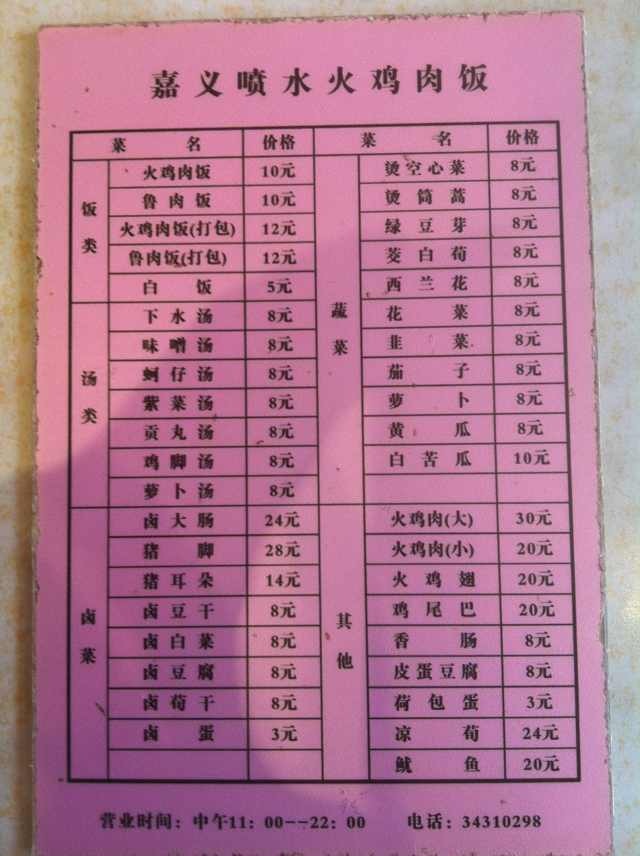 嘉义喷水火鸡肉饭
菜名 价格 菜名 价格
饭类
火鸡肉饭 10元
鲁肉饭 10元
火鸡肉饭(打包) 12元
鲁肉饭(打包) 12元
白饭 5元
汤类
下水汤 8元
味噌汤 8元
蚵仔汤 8元
紫菜汤 8元
贡丸汤 8元
鸡脚汤 8元
萝卜汤 8元
卤菜
卤大肠 24元
猪脚 28元
猪耳朵 14元
卤豆干 8元
卤白菜 8元
卤豆腐 8元
卤荀干 8元
卤蛋 3元
蔬菜
烫空心菜 8元
烫筒蒿 8元
绿豆芽 8元
茭白荀 8元
西兰花 8元
花菜 8元
韭菜 8元
茄子 8元
萝卜 8元
黄瓜 8元
白苦瓜 10元
其他
火鸡肉(大) 30元
火鸡肉(小) 20元
火鸡翅 20元
鸡尾巴 20元
香肠 8元
皮蛋豆腐 8元
荷包蛋 3元
凉荀 24元
鱿鱼 20元
营业时间：中午11：00--22：00 电话：34310298